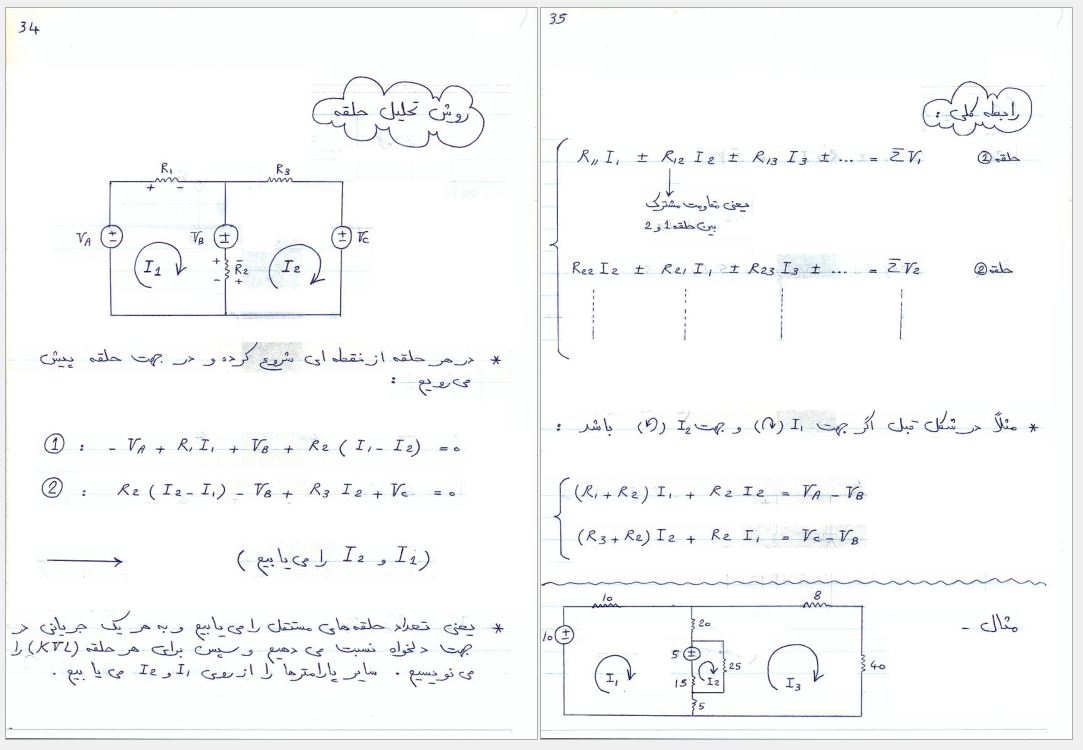 34
روش تحلیل حلقه
R1
R3
+ -
VA
VB
VC
I1
+
R2
- +
I2
* در هر حلقه از نقطه ای شروع کرده و در جهت حلقه پیش
می رویم :
① : - VA + R1 I1 + VB + R2 ( I1 - I2 ) = 0
② : R2 ( I2 - I1 ) - VB + R3 I2 + VC = 0
( I1 و I2 را می یابیم )
* یعنی تعداد حلقه های مستقل را می یابیم و به هر یک جریانی در
جهت دلخواه نسبت می دهیم و سپس برای هر حلقه (KVL) را
می نویسیم . سایر پارامترها را از روی I1 و I2 می یابیم .
35
رابطه کلی :
R11 I1 ± R12 I2 ± R13 I3 ± ... = ΣV1 حلقه ①
یعنی مقاومت مشترک
بین حلقه 1 و 2
R22 I2 ± R21 I1 ± R23 I3 ± ... = ΣV2 حلقه ②
* مثلاً در شکل قبل اگر جهت I1 (↻) و جهت I2 (↺) باشد :
(R1 + R2) I1 + R2 I2 = VA - VB
(R3 + R2) I2 + R2 I1 = VC - VB
مثال -
10
8
10
20
5
25
15
5
40
I1
I2
I3